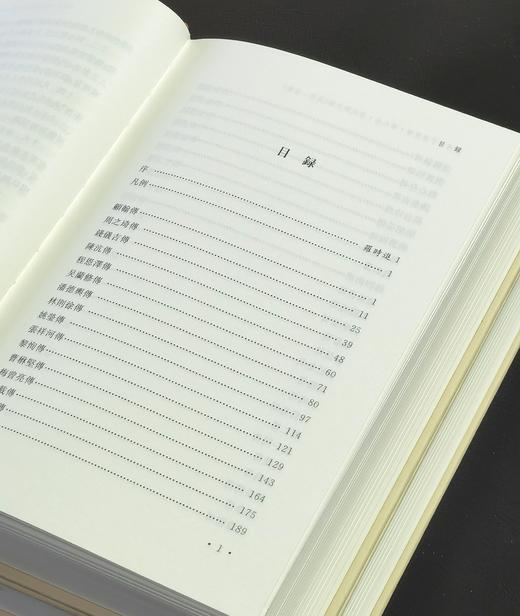 目 錄
目 錄
序……羅時進 1
凡例……1
顧翰傳……1
周之琦傳……11
錢儀吉傳……25
陳沆傳……39
程恩澤傳……48
吳蘭修傳……60
潘德輿傳……71
林則徐傳……80
姚瑩傳……97
張祥河傳……114
黎恂傳……121
曹楙堅傳……129
梅曾亮傳……143
傳……164
傳……175
……189
·1·